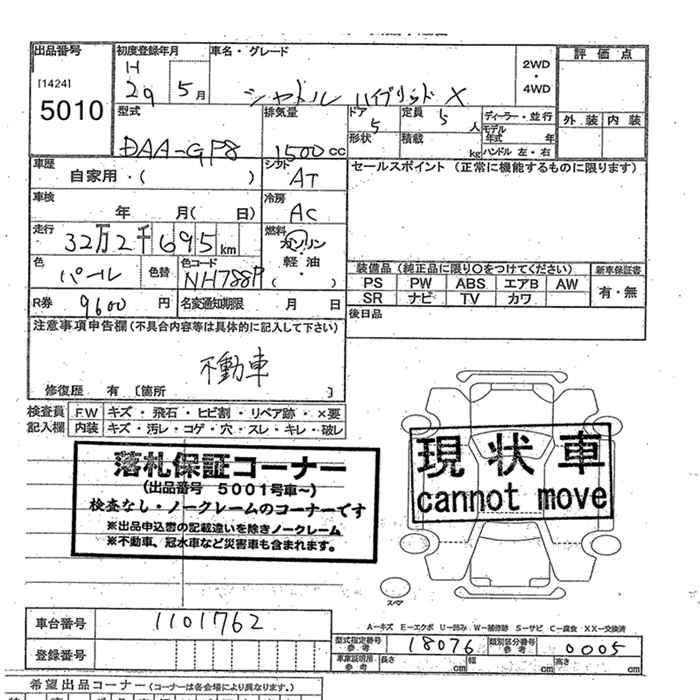 出品番号 初度登録年月 車名・グレード 評価点
[1424] H 2WD
5010 29 5月 シャトル ハイブリッド X ・
4WD
型式 排気量 ドア 定員 ディーラー・並行 外装 内装
DAA-GP8 1500cc 5 5人 モデル年式 年
形状 積載 kg ハンドル 左・右
車歴 シフト セールスポイント (正常に機能するものに限ります)
自家用・( ) AT
車検 冷房
年 月( 日) AC
走行 燃料
32万2千695km ガソリン・軽油・( )
色 色替 色コード 装備品(純正品に限り〇をつけてください) 新車保証書
パール NH788P PS PW ABS エアB AW 有・無
SR ナビ TV カワ
R券 9600円 名変通知期限 月 日 後日品
注意事項申告欄(不具合内容等は具体的に記入して下さい)
不動車
修復歴 有 [箇所 ]
検査員 F.W キズ・飛石・ヒビ割・リペア跡・×要
記入欄 内装 キズ・汚レ・コゲ・穴・スレ・キレ・破レ
落札保証コーナー
(出品番号 5001号車~)
検査なし・ノークレームのコーナーです
※出品申込書の記載違いを除きノークレーム
※不動車、冠水車など災害車も含まれます。
現状車
cannot move
スペア
A―キズ E―エクボ U―凹み W―補修跡 S―サビ C―腐食 XX―交換済
車台番号 1101762
型式指定番号 参考 18076 類別区分番号 参考 0005
登録番号 車庫証明用 参考 長さ cm 幅 cm 高さ cm
希望出品コーナー(コーナーは各会場により異なります。)